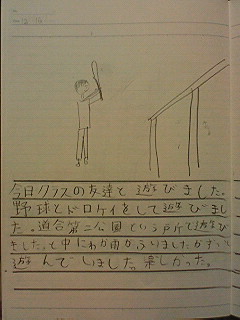 今日クラスの友達と遊びました。
野球とドロケイをして遊びまし
た。道合第二公園という所で遊び
ました。と中にわか雨がふりましたがずっと
遊んでしました。楽しかった。